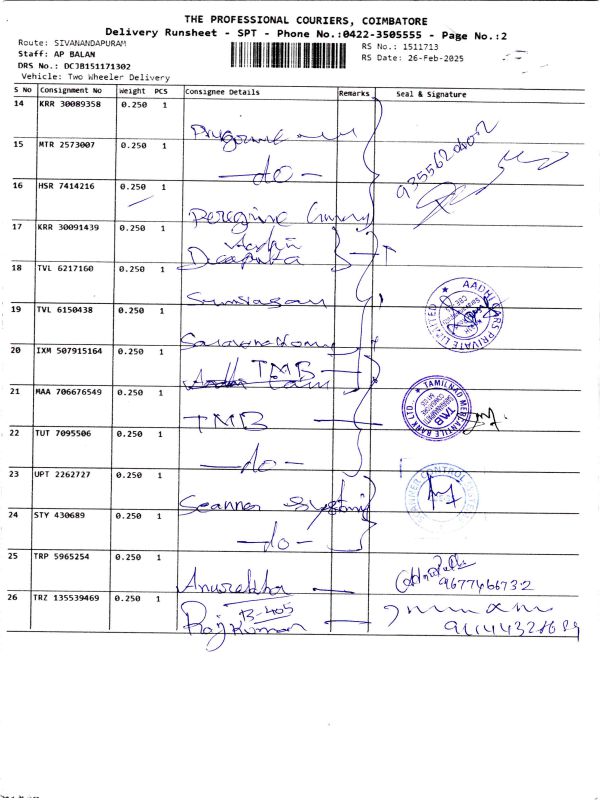 THE PROFESSIONAL COURIERS, COIMBATORE
Delivery Runsheet - SPT - Phone No.:0422-3505555 - Page No.:2
Route: SIVANANDAPURAM
RS No.: 1511713
Staff: AP BALAN
RS Date: 26-Feb-2025
DRS No.: DCJB151171302
Vehicle: Two Wheeler Delivery
S No Consignment No Weight PCS Consignee Details Remarks Seal & Signature
14 KRR 30089358 0.250 1
15 MTR 2573007 0.250 1 -do-
16 HSR 7414216 0.250 1 Peregrine
9355620402
17 KRR 30091439 0.250 1
18 TVL 6217160 0.250 1
19 TVL 6150438 0.250 1
AADHI CARS PRIVATE LIMITED
20 IXM 507915164 0.250 1 TMB
21 MAA 706676549 0.250 1 TMB
TAMILNAD MERCANTILE BANK LTD
TMB
22 TUT 7095506 0.250 1 -do-
23 UPT 2262727 0.250 1 Scanner
24 STY 430689 0.250 1 -do-
25 TRP 5965254 0.250 1 Anurekha
9677466732
26 TRZ 135539469 0.250 1 B-405
Rajkumar